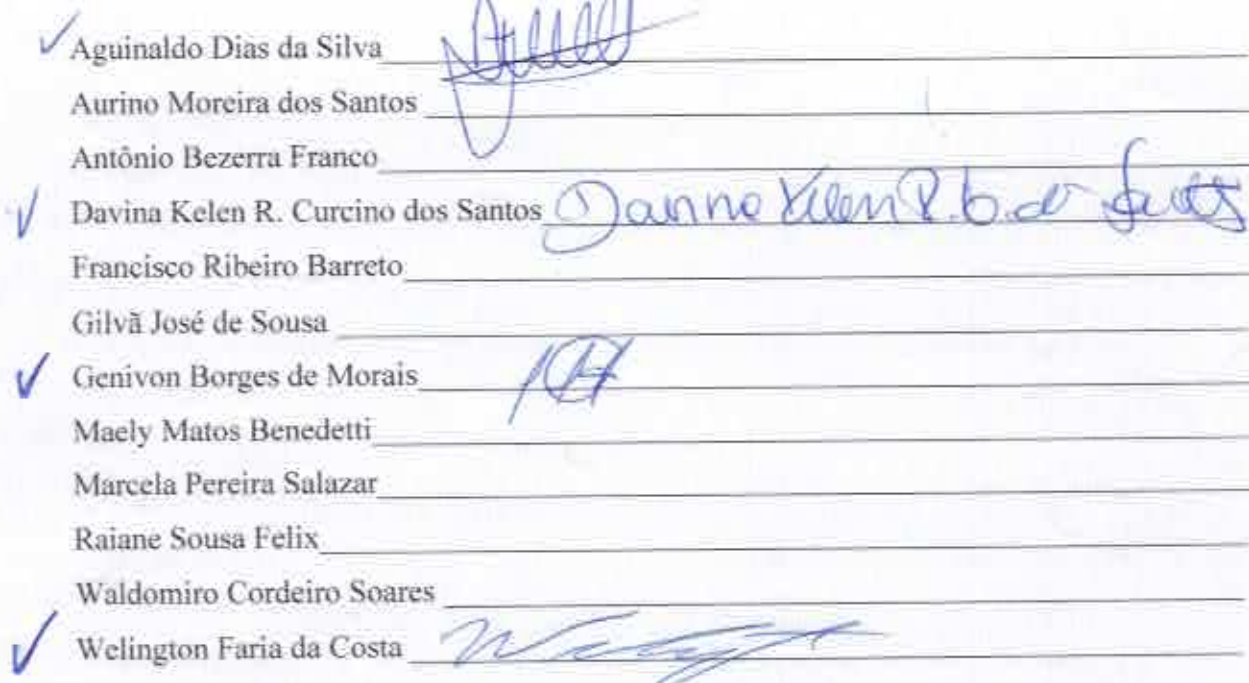 Aguinaldo Dias da Silva
Aurino Moreira dos Santos
Antônio Bezerra Franco
Davina Kelen R. Curcino dos Santos
Francisco Ribeiro Barreto
Gilvã José de Sousa
Genivon Borges de Morais
Maely Matos Benedetti
Marcela Pereira Salazar
Raiane Sousa Felix
Waldomiro Cordeiro Soares
Welington Faria da Costa